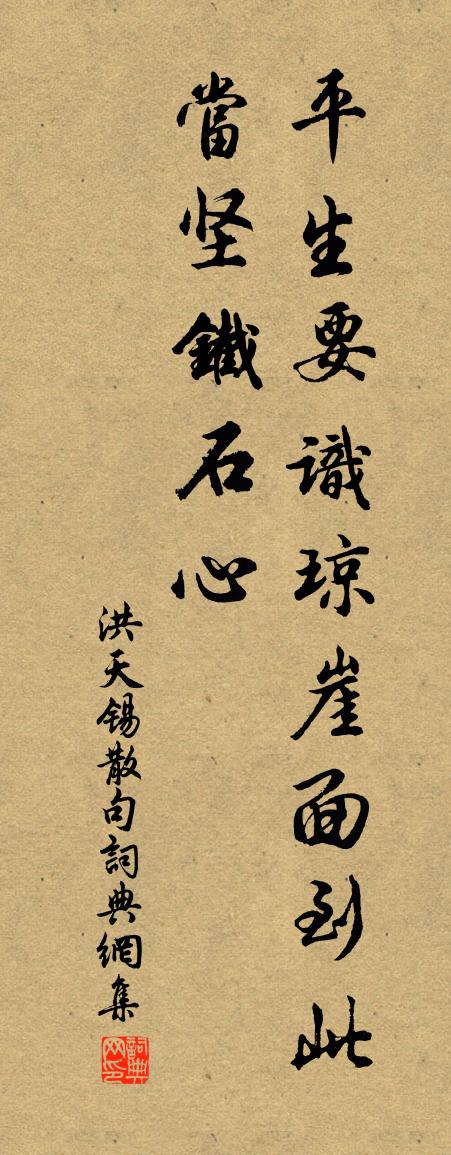 平生要識琼崖面到此
當坚鐵石心
洪天锡散句詞典網集
詞典网印